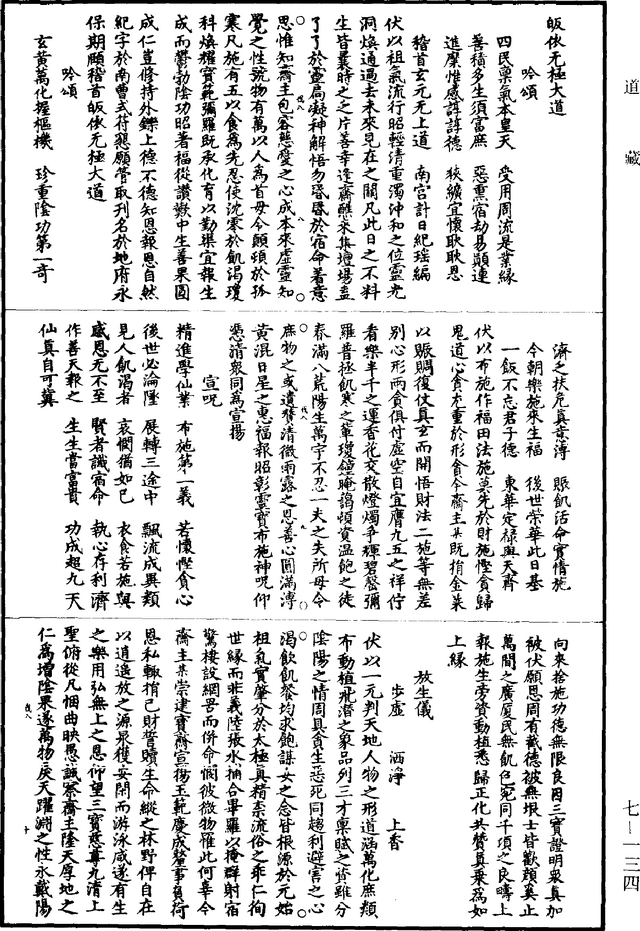 道藏
皈依无極大道
吟頌
四民稟氣本皇天　受用周流是業緣
善積多生須富庶　惡熏宿劫易顛連
進麋惟感諄諄德　挾纊宜懷耿耿恩
稽首玄元无上道　南宮計日紀瑤編
伏以祖氣流行昭輕清重濁沖和之位靈光
洞煥通過去未來見在之間凡此日之不料
生皆曩時之片善幸逢齋醮來集壇場盍
了了於靈扃凝神解悟勿昏昏於宿命著意
思惟知齋主包容慈愛之心成本來虛靈知
覺之性號物有萬以人為首毋令顛頓於孤
寒凡施有五以食為先忍使沈寒於飢渴瓊
科煥耀寶範彌羅既承化育以勤渠宜報生
成而欝勃陰功昭著福從讚歎中生善果圓
成仁豈修持外鑠上德不德知恩報恩自然
紀字於南曹式符懇願管取刋名於地府永
保期頤稽首皈依无極大道
吟頌
玄黃萬化握樞機　珍重陰功第一奇
濟之扶危真意溥　賑飢活命實情施
今朝樂施來生福　後世榮華此日基
一飯不忘君子德　東華定祿與天齊
伏以布施作福田法施莫先於財施慳貪歸
鬼道心食尤重於形食今齋主某既捐金菜
以賑賙復仗真玄而開悟財法二施等無差
別心形兩貪俱付虛空自宜膺九五之祥佇
看樂半千之運香花交散燈燭爭輝碧罄彌
羅普拯飢寒之輩瓊鐘晻藹頓資温飽之徒
春滿八荒陽生萬宇不忍一夫之失所毋令
庶物之或遺贊清微雨露之恩善心圓滿溥
黃混日星之惠福報昭彰靈寶布施神呪仰
憑清衆同為宣揚
宣呪
精進學仙業　布施第一義　若懷慳貪心
後世必淪墜　展轉三途中　飄流成異類
見人飢渴者　哀憫猶如己　衣食苦施與
感恩无不至　賢者識宿命　執心存利濟
作善天報之　生生當富貴　功成超九天
仙真自可冀
向來捨施功德無限良因三寶證明衆真加
被伏願恩周有截德被無垠士皆歡顔奚止
萬間之廣厦民無飢色宛同千項之良疇上
報施生旁資動植悉歸正化共贊真乘為如
上緣
放生儀
步虛　洒淨　上香
伏以一元判天地人物之形道涵萬化庶類
布動植飛潛之象品列三才稟賦之資雖分
陰陽之情周具貪生惡死同趨利避害之心
渴飲飢餐均求飽謀安之念皆根源於元始
祖氣實肇分於太極真精柰流俗之乖仁徇
世緣而非義陸張水捕合畢羅以掩群射宿
驚棲設網罟而併命憫彼微物惟此何辜今
齋主某崇建寶齋宣揚玉範慶成釐事負荷
恩私輙捐己財普贖生命縱之林野俾自在
以逍遙放之源泉獲安閑而游泳咸遂有生
之樂用弘無上之恩仰望三寶慈尊九清上
聖俯從凡悃曲映愚誠察齋主隆天厚地之
仁為增陰果遂萬物戾天躍淵之性永戴陽
七─一三四